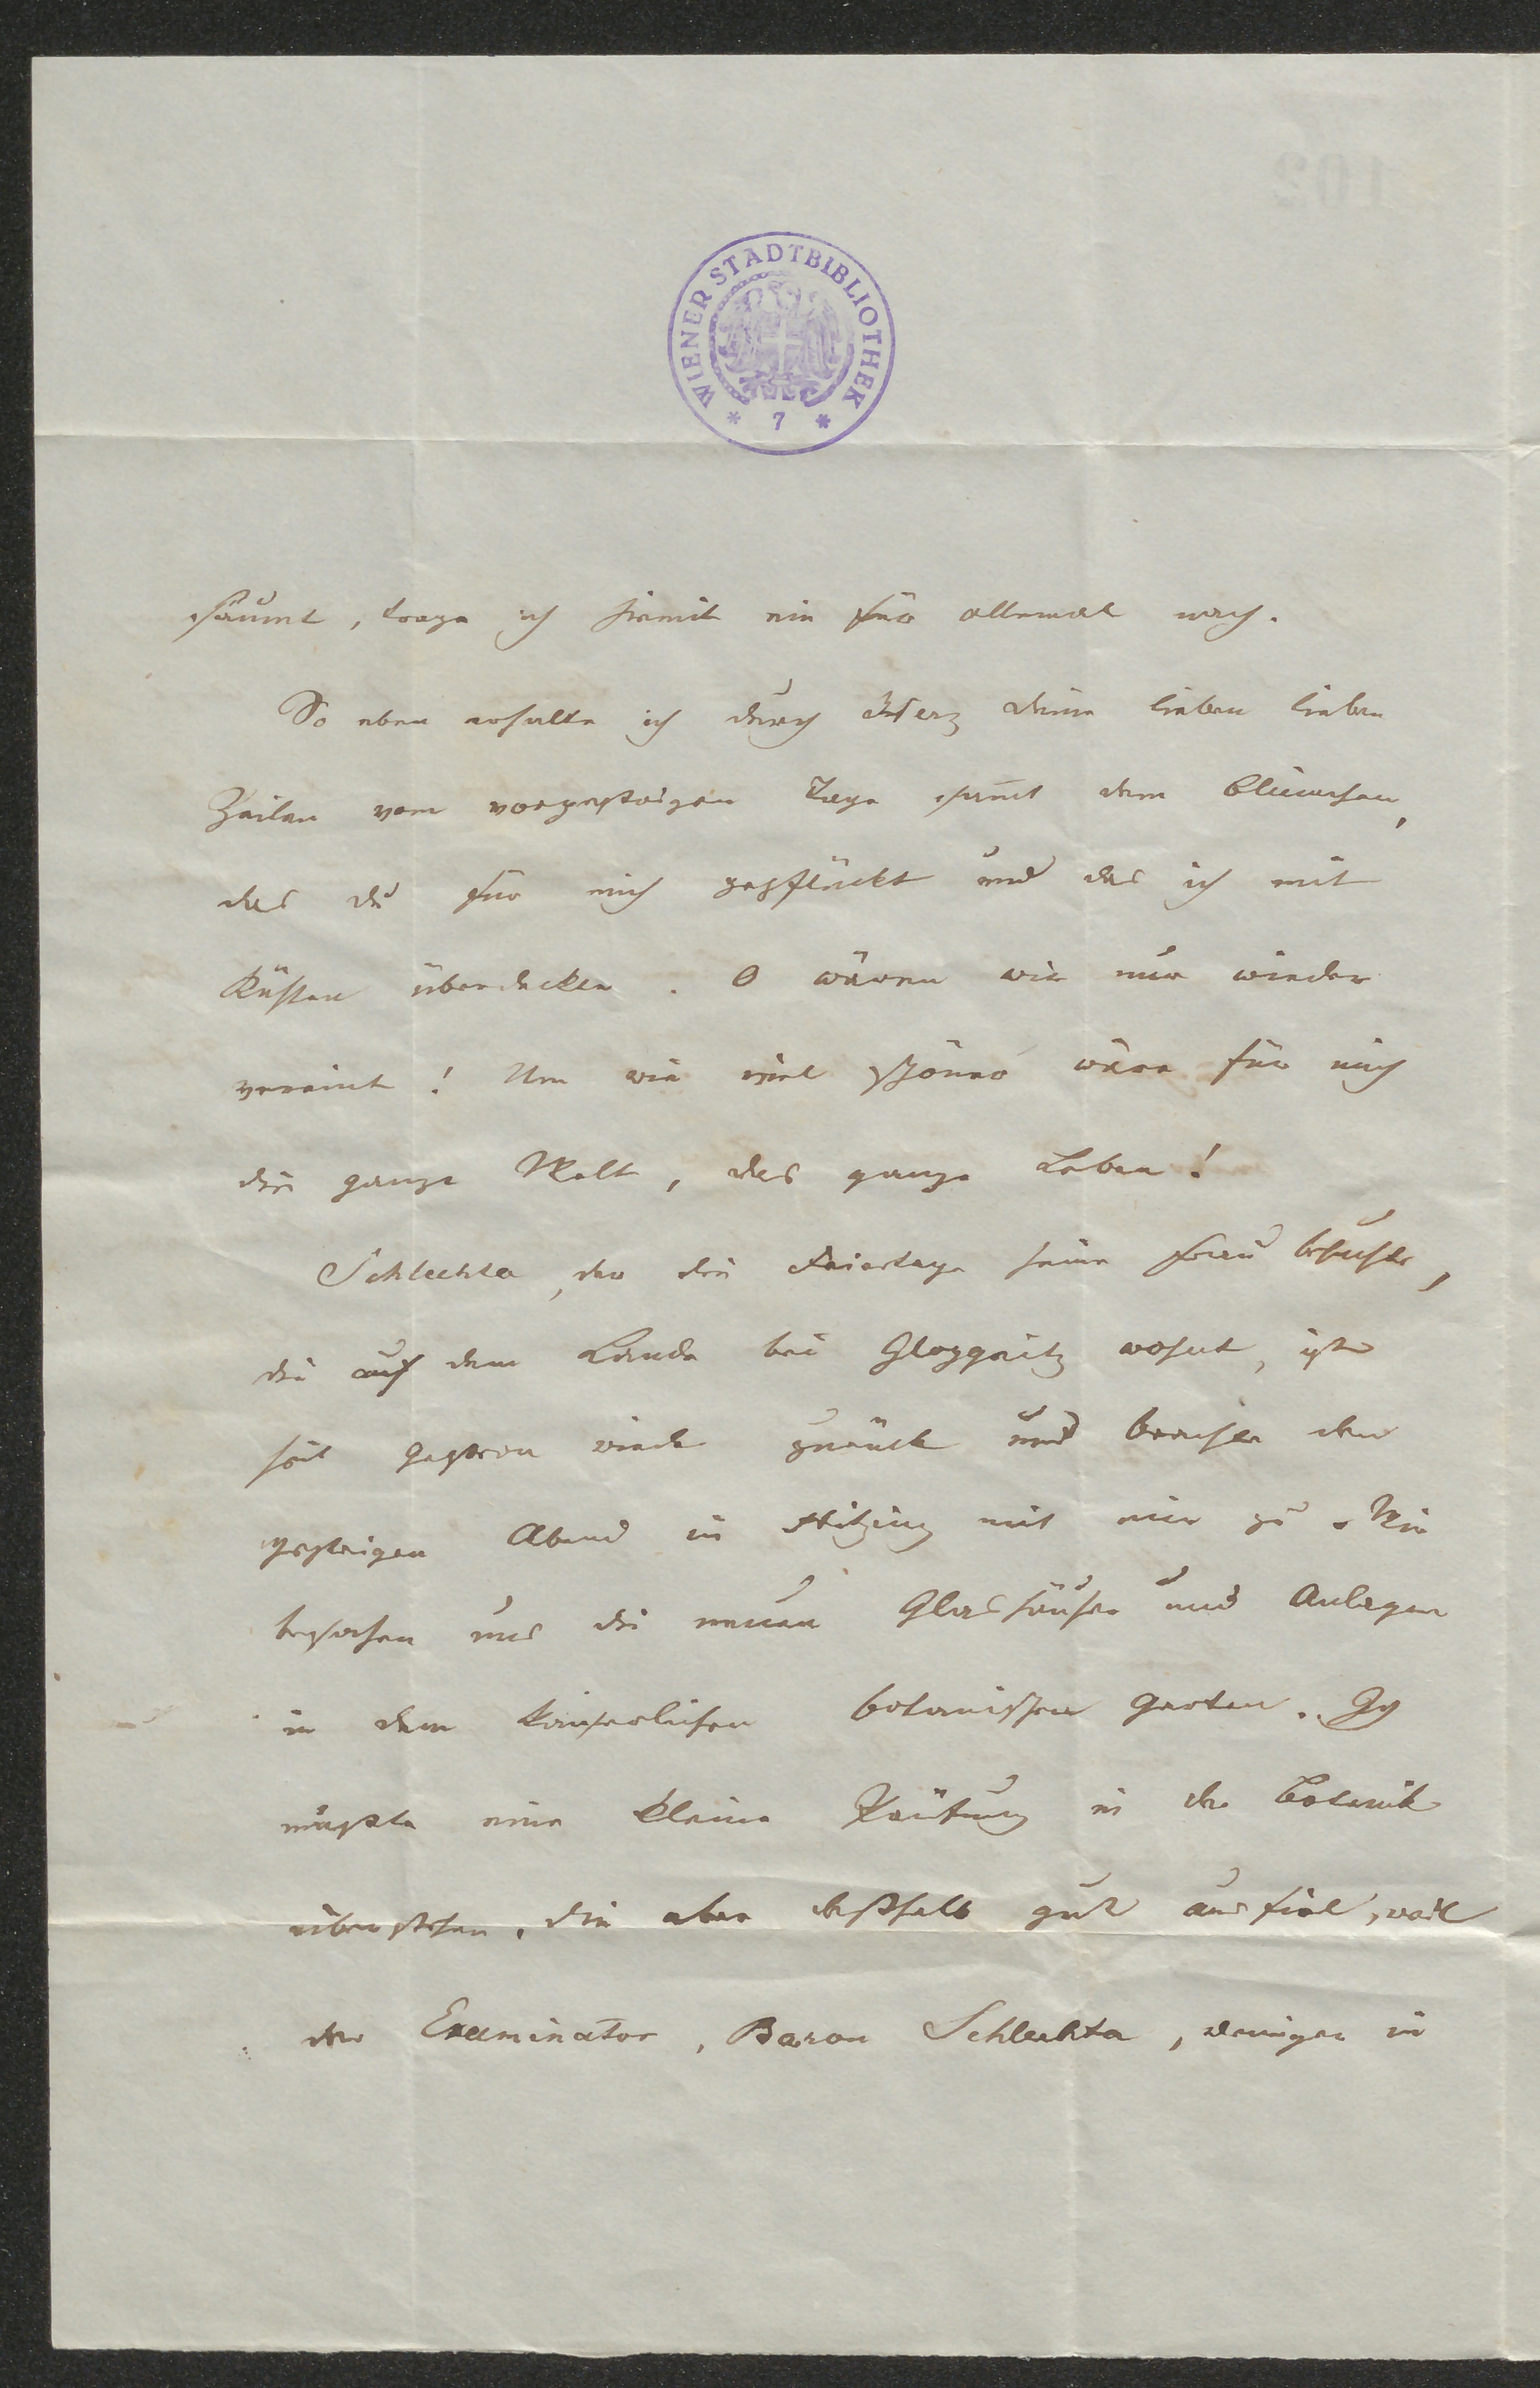 102
WIENER STADTBIBLIOTHEK
* 7 *
säumt, trage ich hiemit ein für allemal nach.
So eben erhalte ich durch Herz deine lieben lieben
Zeilen vom vorgestrigen Tage sam̅t dem Blümchen,
das du für mich gepflückt und das ich mit
Küssen überdecke. O wären wir nur wieder
vereint! Um wie viel schöner wäre für mich
die ganze Welt, das ganze Leben!
Schlechta, der die Feiertage seine Frau besuchte,
die auf dem Lande bei Gloggnitz wohnt, ist
seit gestern wieder zurück und brachte den
gestrigen Abend in Hitzing mit mir zu. Wir
besahen uns die neuen Glashäuser und Anlagen
in dem kaiserlichen botanischen Garten. Ich
mußte eine kleine Prüfung in der Botanik
überstehen, die aber deßhalb gut ausfiel, weil
der Examinator, Baron Schlechta, weniger in